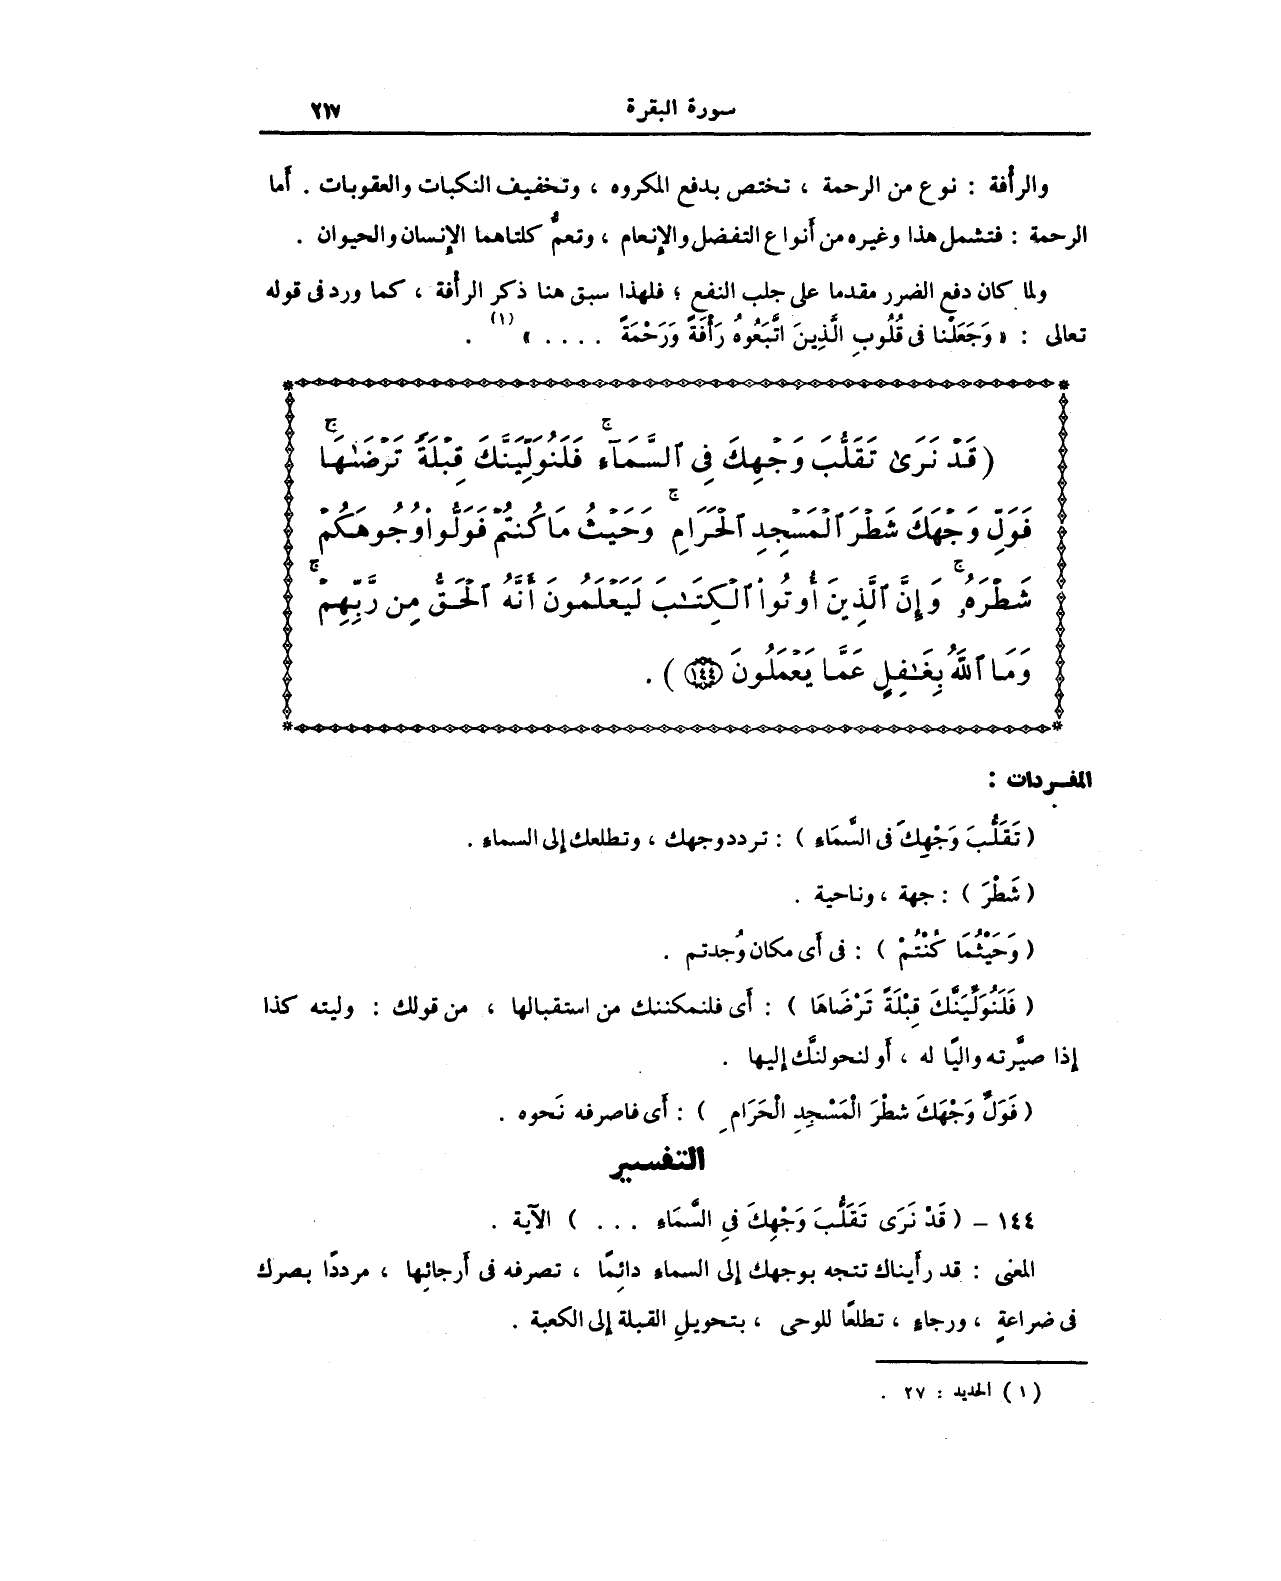 سورة البقرة ٢١٧
والرأفة : نوع من الرحمة ، تختص بدفع المكروه ، وتخفيف النكبات والعقوبات . أَما
الرحمة : فتشمل هذا وغيره من أَنواع التفضل والإِنعام ، وتعمُّ كلتاهما الإِنسان والحيوان .
ولما كان دفع الضرر مقدما على جلب النفع ؛ فلهذا سبق هنا ذكر الرأْفة ، كما ورد فى قوله
تعالى : « وَجَعَلْنا فى قُلُوبِ الَّذِينَ اتَّبَعُوهُ رَأْفَةً وَرَحْمَةً . . . . » (١) .
( قَدْ نَرَىٰ تَقَلُّبَ وَجْهِكَ فِى ٱلسَّمَآءِ ۖ فَلَنُوَلِّيَنَّكَ قِبْلَةً تَرْضَىٰهَا ۚ
فَوَلِّ وَجْهَكَ شَطْرَ ٱلْمَسْجِدِ ٱلْحَرَامِ ۚ وَحَيْثُ مَا كُنتُمْ فَوَلُّوا۟ وُجُوهَكُمْ
شَطْرَهُۥ ۗ وَإِنَّ ٱلَّذِينَ أُوتُوا۟ ٱلْكِتَٰبَ لَيَعْلَمُونَ أَنَّهُ ٱلْحَقُّ مِن رَّبِّهِمْ ۗ
وَمَا ٱللَّهُ بِغَٰفِلٍ عَمَّا يَعْمَلُونَ ١٤٤ ) .
المفـردات :
( تَقَلُّبَ وَجْهِكَ فى السَّمَاءِ ) : تردد وجهك ، وتطلعك إلى السماء .
( شَطْرَ ) : جهة ، وناحية .
( وَحَيْثُمَا كُنْتُمْ ) : فى أَى مكان وُجدتم .
( فَلَنُوَلِّيَنَّكَ قِبْلَةً تَرْضَاهَا ) : أَى فلنمكننك من استقبالها ، من قولك : وليته كذا
إذا صيَّرته واليًا له ، أَو لنحولنَّك إليها .
( فَوَلِّ وَجْهَكَ شطْرَ الْمَسْجِدِ الْحَرَامِ ) : أَى فاصرفه نَحوه .
التفسير
١٤٤ – ( قَدْ نَرَى تَقَلُّبَ وَجْهِكَ فىِ السَّمَاءِ . . . ) الآية .
المعنى : قد رأَيناك تتجه بوجهك إلى السماء دائِمًا ، تصرفه فى أَرجائِها ، مرددًا بصرك
فى ضراعةٍ ، ورجاءٍ ، تطلعًا للوحى ، بتحويلِ القبلة إلى الكعبة .
( ١ ) الحديد : ٢٧ .